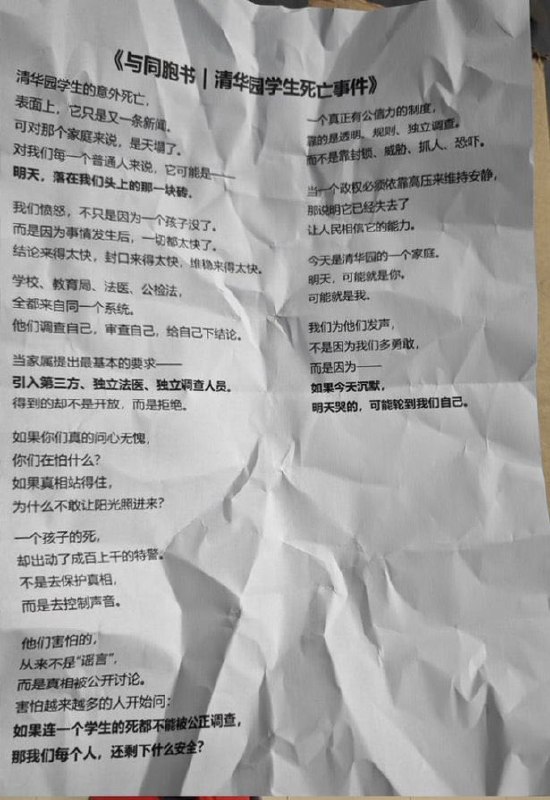 《与同胞书｜清华园学生死亡事件》
清华园学生的意外死亡，
表面上，它只是又一条新闻。
可对那个家庭来说，是天塌了。
对我们每一个普通人来说，它可能是——
明天，落在我们头上的那一块砖。
我们愤怒，不只是因为一个孩子没了。
而是因为事情发生后，一切都太快了。
结论来得太快，封口来得太快，维稳来得太快。
学校、教育局、法医、公检法，
全都来自同一个系统。
他们调查自己，审查自己，给自己下结论。
当家属提出最基本的要求——
引入第三方、独立法医、独立调查人员。
得到的却不是开放，而是拒绝。
如果你们真的问心无愧，
你们在怕什么？
如果真相站得住，
为什么不敢让阳光照进来？
一个孩子的死，
却出动了成百上千的特警。
不是去保护真相，
而是去控制声音。
他们害怕的，
从来不是“谣言”，
而是真相被公开讨论。
害怕越来越多的人开始问：
如果连一个学生的死都不能被公正调查，
那我们每个人，还剩下什么安全？
一个真正有公信力的制度，
靠的是透明、规则、独立调查。
而不是靠封锁、威胁、抓人、恐吓。
当一个政权必须依靠高压来维持安静，
那说明它已经失去了
让人民相信它的能力。
今天是清华园的一个家庭。
明天，可能就是你。
可能就是我。
我们为他们发声，
不是因为我们多勇敢，
而是因为——
如果今天沉默，
明天哭的，可能轮到我们自己。